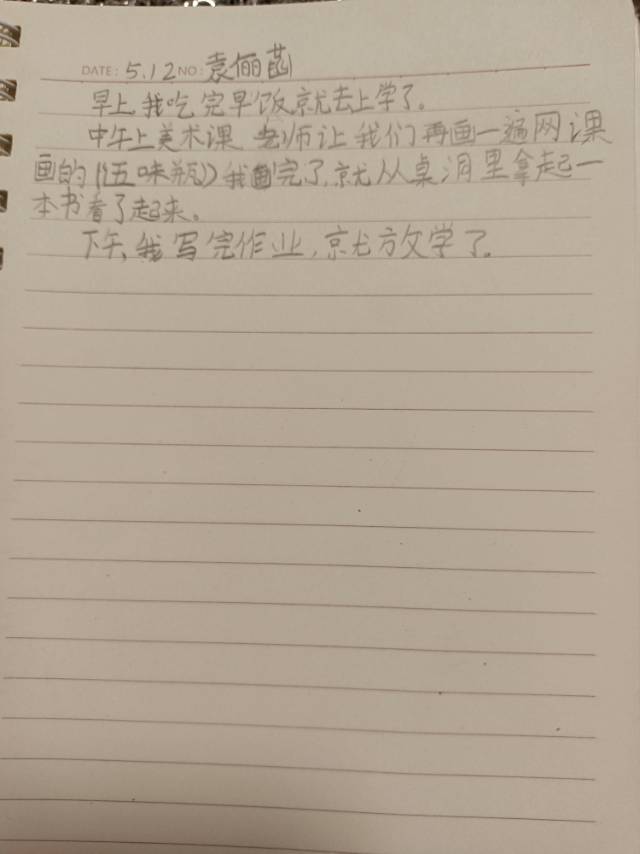 DATE: 5.12 NO: 袁俪菡
早上,我吃完早饭就去上学了。
中午上美术课 老师让我们再画一遍网课
画的《五味瓶》我画完了,就从桌洞里拿起一
本书看了起来。
下午,我写完作业,就放学了。